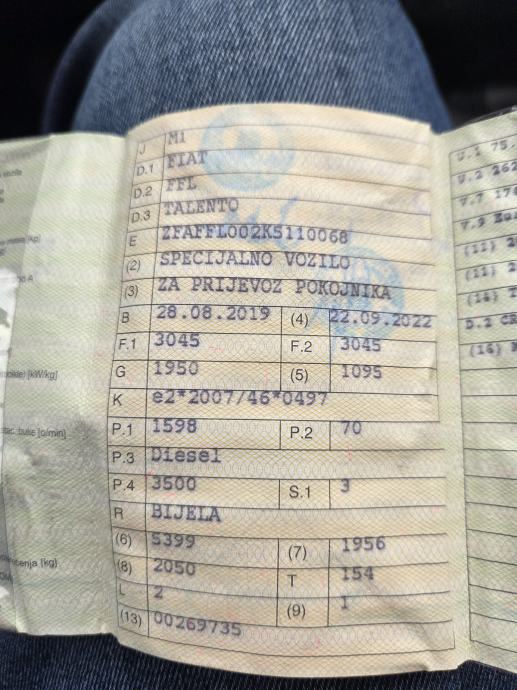 J M1
D.1 FIAT
D.2 FFL
D.3 TALENTO
E ZFAFFL002K5110068
(2) SPECIJALNO VOZILO
(3) ZA PRIJEVOZ POKOJNIKA
B 28.08.2019 (4) 22.09.2022
F.1 3045 F.2 3045
G 1950 (5) 1095
K e2*2007/46*0497
P.1 1598 P.2 70
P.3 Diesel
P.4 3500 S.1 3
R BIJELA
(6) 5399 (7) 1956
(8) 2050 T 154
L 2 (9) 1
(13) 00269735
[kW/kg]
buke [o/min]
[kg]
U.1 75.
U.2 262
V.7 170
V.9
(11)
(11)
D.2
(16)